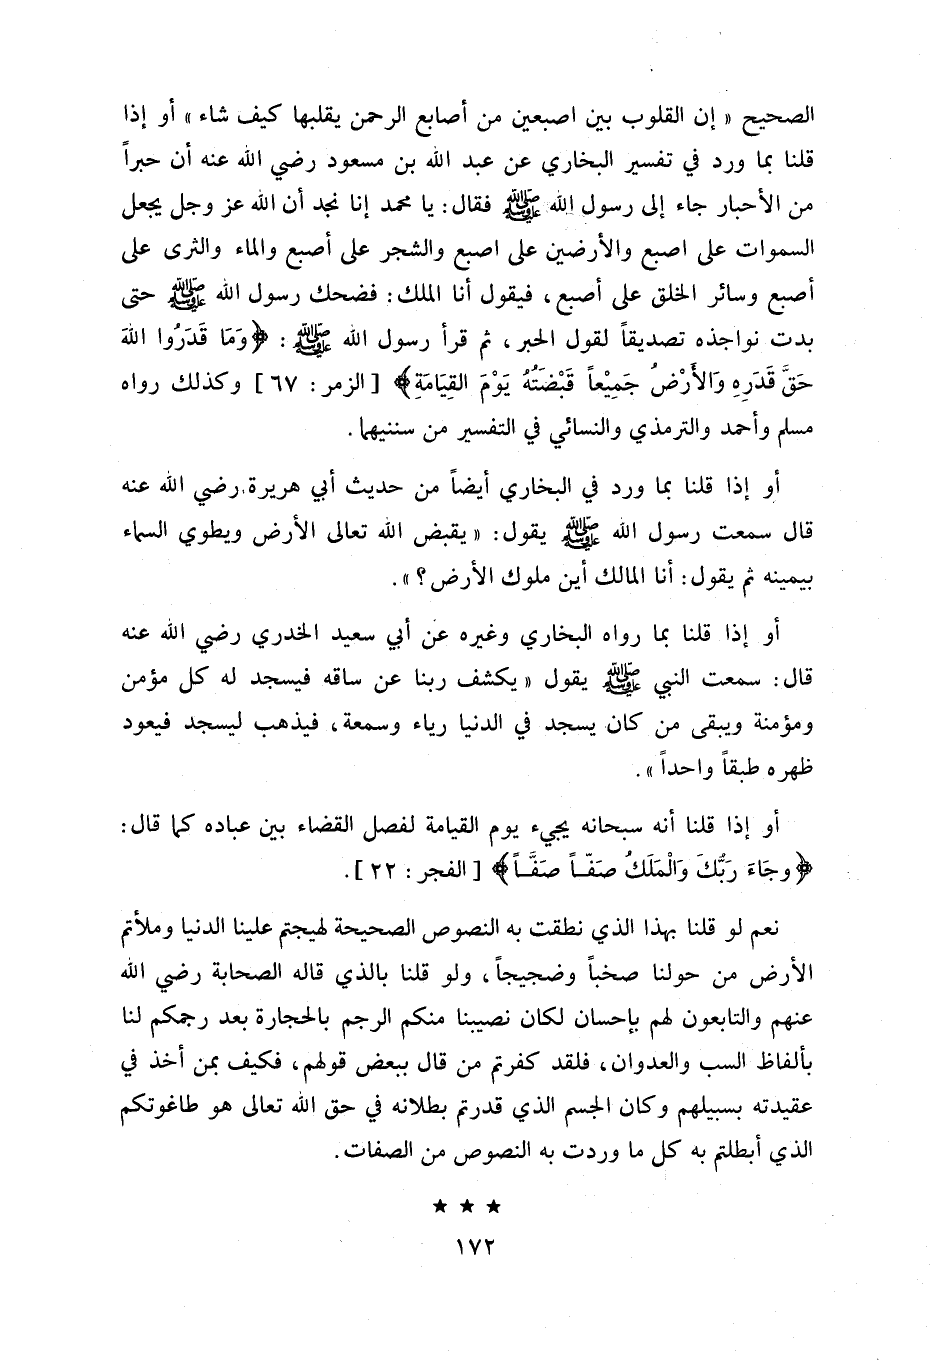 الصحيح « إن القلوب بين اصبعين من أصابع الرحمن يقلبها كيف شاء » أو إذا
قلنا بما ورد في تفسير البخاري عن عبد الله بن مسعود رضي الله عنه أن حبراً
من الأحبار جاء إلى رسول الله ﷺ فقال : يا محمد إنا نجد أن الله عز وجل يجعل
السموات على اصبع والأرضين على اصبع والشجر على أصبع والماء والثرى على
أصبع وسائر الخلق على أصبع ، فيقول أنا الملك : فضحك رسول الله ﷺ حتى
بدت نواجذه تصديقاً لقول الحبر ، ثم قرأ رسول الله ﷺ : ﴿وَمَا قَدَرُوا اللهَ
حَقَّ قَدَرِهِ وَالأَرْضُ جَمِيْعاً قَبْضَتُهُ يَوْمَ القِيَامَةِ﴾ [ الزمر : ٦٧ ] وكذلك رواه
مسلم وأحمد والترمذي والنسائي في التفسير من سننيهما .
أو إذا قلنا بما ورد في البخاري أيضاً من حديث أبي هريرة رضي الله عنه
قال سمعت رسول الله ﷺ يقول : « يقبض الله تعالى الأرض ويطوي السماء
بيمينه ثم يقول : أنا المالك أين ملوك الأرض ؟ » .
أو إذا قلنا بما رواه البخاري وغيره عن أبي سعيد الخدري رضي الله عنه
قال : سمعت النبي ﷺ يقول « يكشف ربنا عن ساقه فيسجد له كل مؤمن
ومؤمنة ويبقى من كان يسجد في الدنيا رياء وسمعة ، فيذهب ليسجد فيعود
ظهره طبقاً واحداً » .
أو إذا قلنا أنه سبحانه يجيء يوم القيامة لفصل القضاء بين عباده كما قال :
﴿وجَاءَ رَبُّكَ وَالْمَلَكُ صَفّاً صَفَّاً﴾ [ الفجر : ٢٢ ] .
نعم لو قلنا بهذا الذي نطقت به النصوص الصحيحة لهيجتم علينا الدنيا وملأتم
الأرض من حولنا صخباً وضجيجاً ، ولو قلنا بالذي قاله الصحابة رضي الله
عنهم والتابعون لهم بإحسان لكان نصيبنا منكم الرجم بالحجارة بعد رجمكم لنا
بألفاظ السب والعدوان ، فلقد كفرتم من قال ببعض قولهم ، فكيف بمن أخذ في
عقيدته بسبيلهم وكان الجسم الذي قدرتم بطلانه في حق الله تعالى هو طاغوتكم
الذي أبطلتم به كل ما وردت به النصوص من الصفات .
★ ★ ★
١٧٢